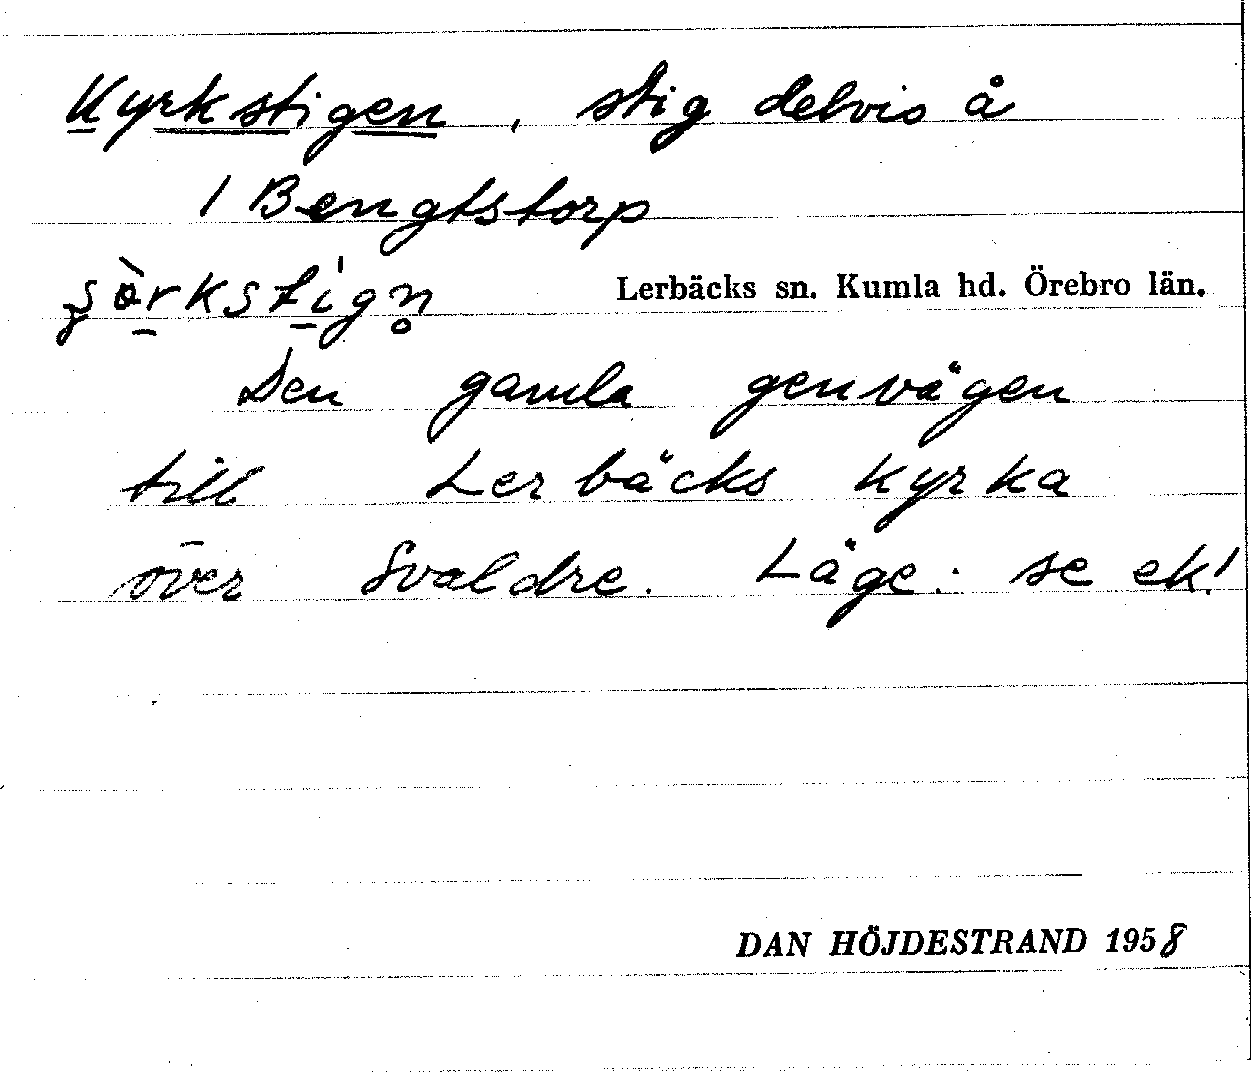 Kyrkstigen, stig delvis å
1 Bengtstorp
şɵ̀rkstìgn̥ Lerbäcks sn. Kumla hd. Örebro län.
Den gamla genvägen
till Lerbäcks kyrka
över Svaldre. Läge: se ek!
DAN HÖJDESTRAND 1958